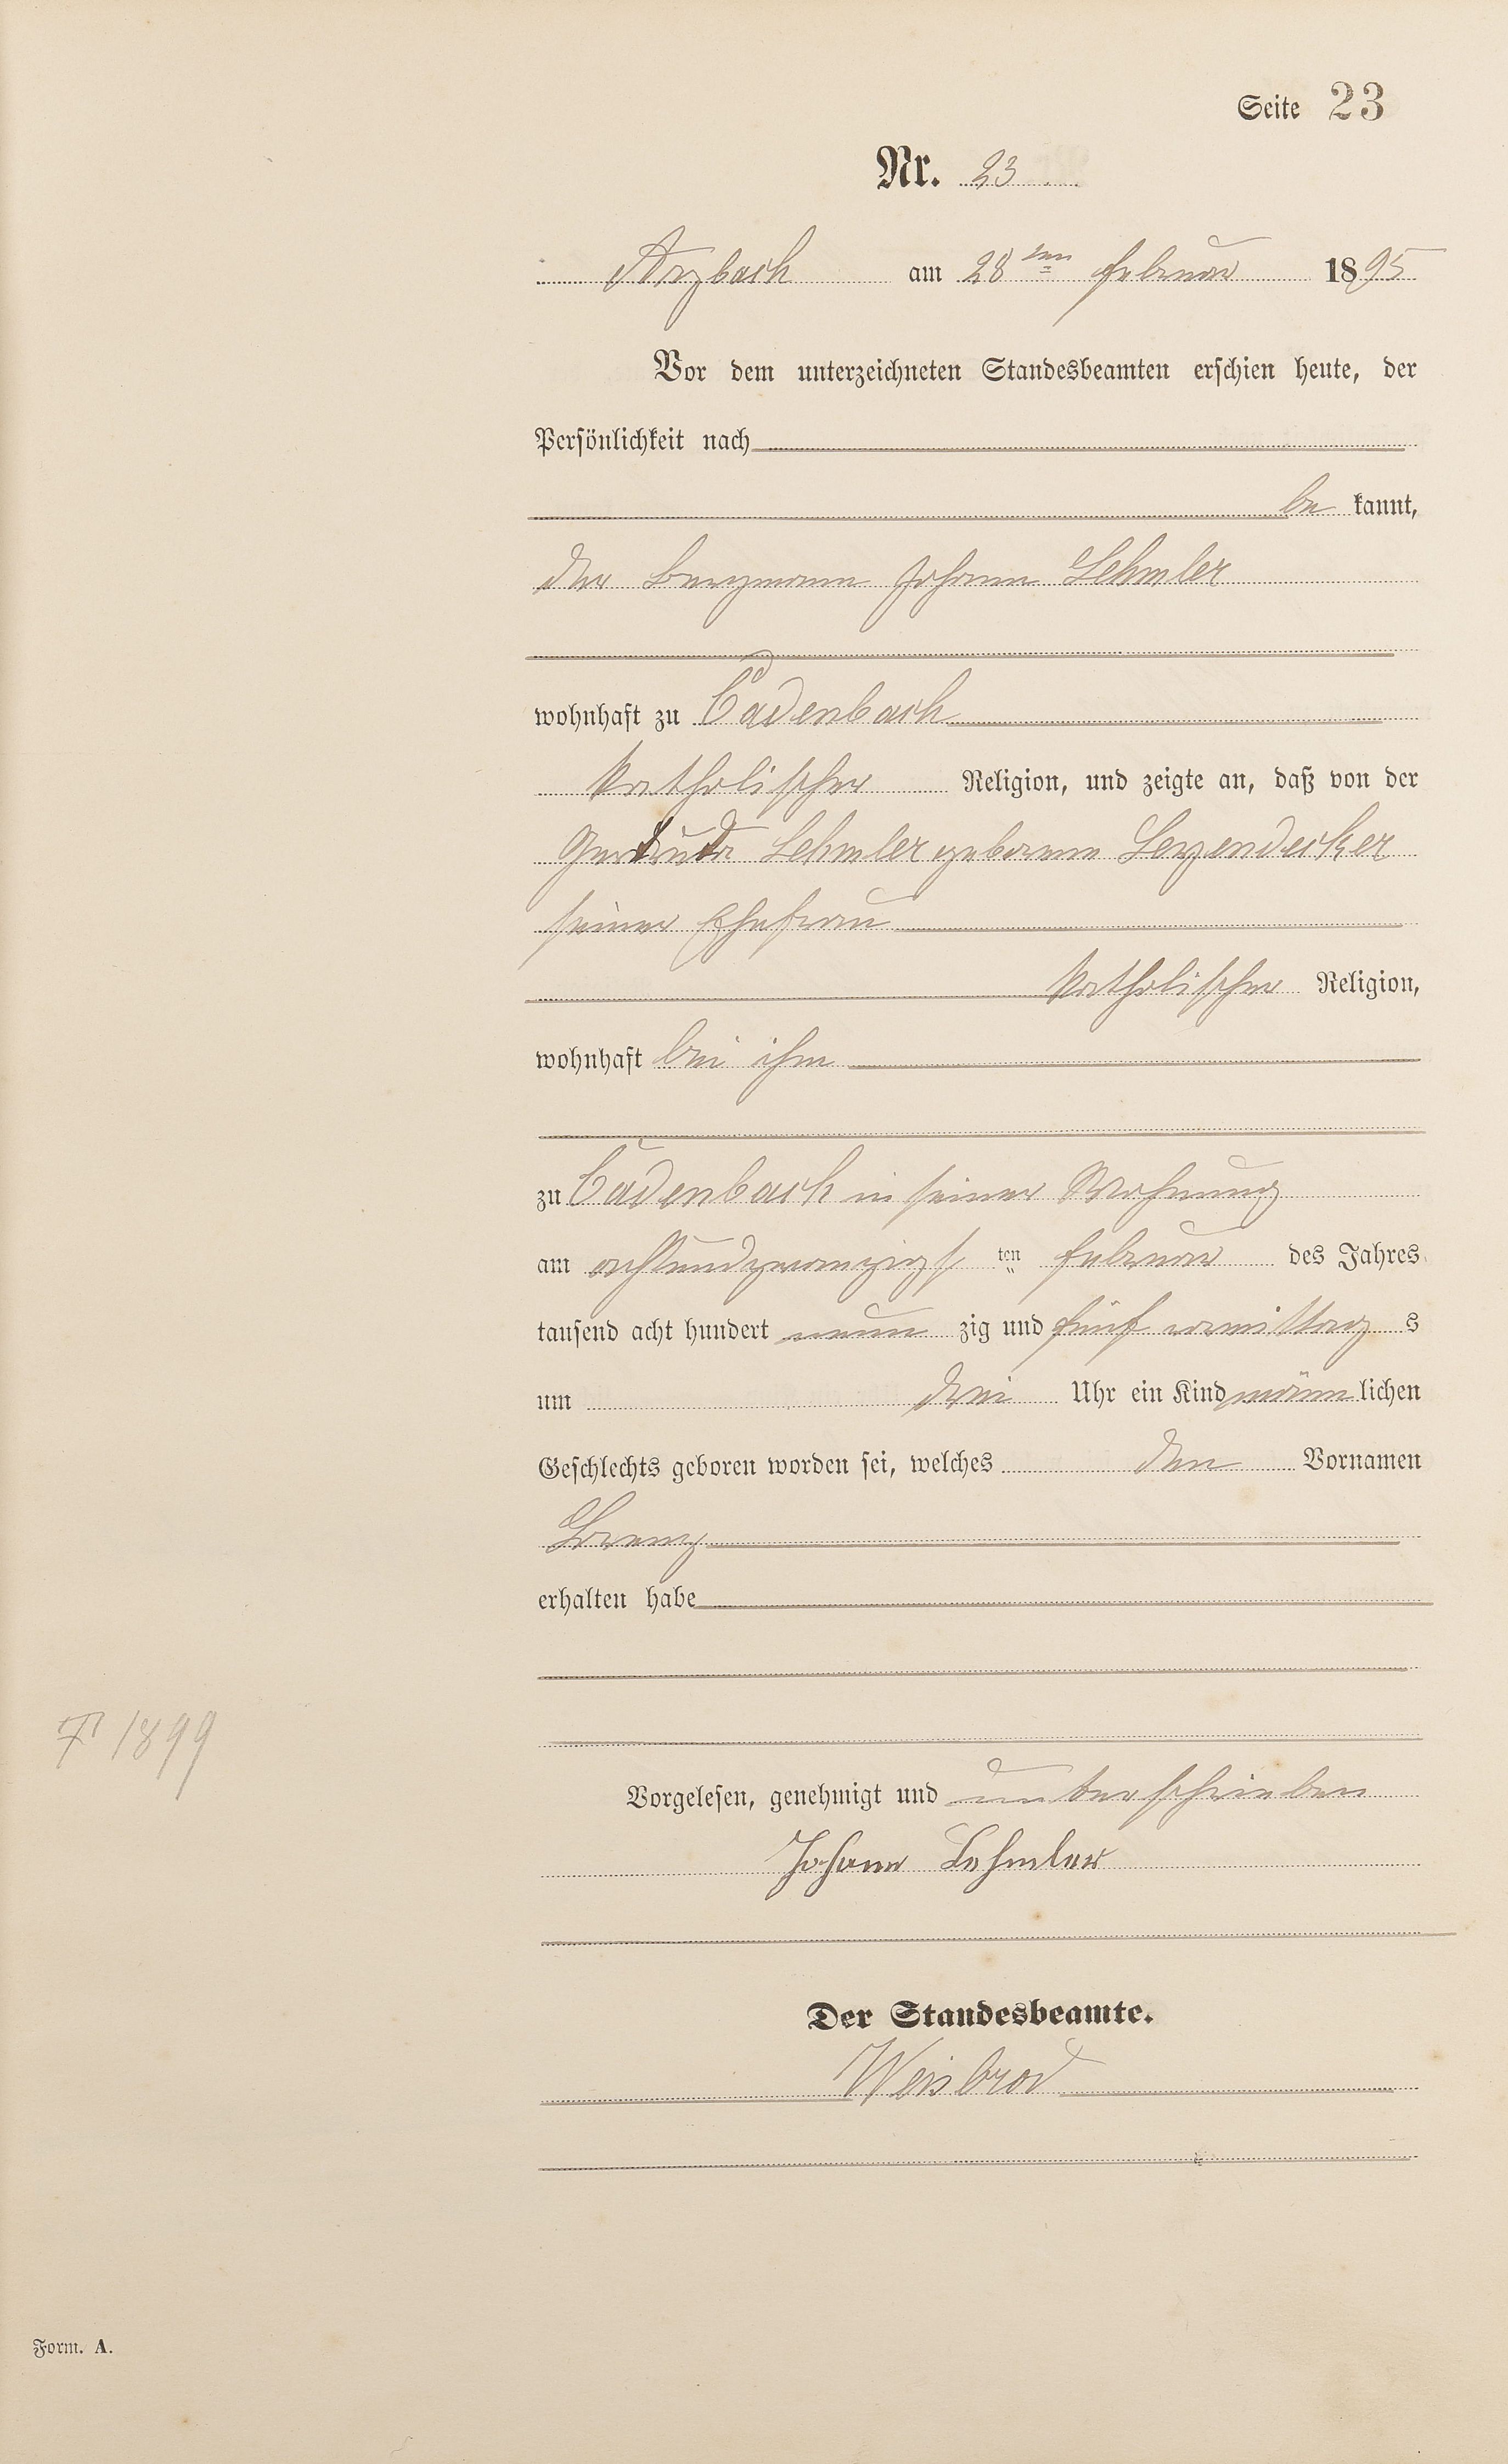 Seite 23
Nr. 23
Arzbach am 28ten Februar 1895
Vor dem unterzeichneten Standesbeamten erschien heute, der
Persönlichkeit nach
be kannt,
der Bergmann Johann Lehmler
wohnhaft zu Cadenbach
katholischer Religion, und zeigte an, daß von der
Gertruda Lehmler geborenen Leyendecker
seiner Ehefrau
katholischer Religion,
wohnhaft bei ihm
zu Cadenbach in seiner Wohnung
am achtundzwanzigs ten Februar des Jahres
tausend acht hundert neun zig und fünf vormittag s
um drei Uhr ein Kind männ lichen
Geschlechts geboren worden sei, welches den Vornamen
Lorenz
erhalten habe
† 1899
Vorgelesen, genehmigt und unterschrieben
Johann Lehmler
Der Standesbeamte.
Weisbrod
Form. A.